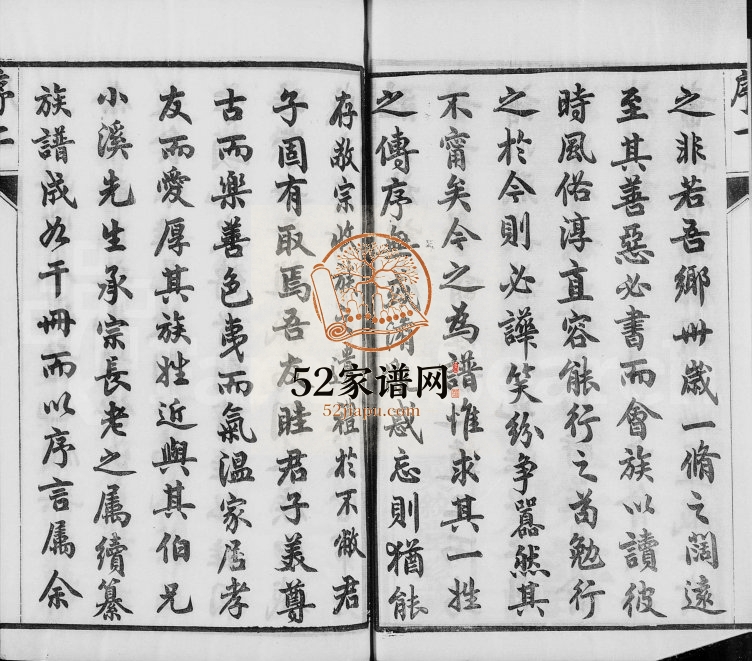 序一
之非若吾鄉卅歲一脩之濶遠
至其善惡必書而會族以讀彼
時風俗淳直容能行之苟勉行
之於今則必譁笑紛争囂然其
不甯矣今之為譜惟求其一姓
之傳序
忘則猶能
序二
存敬宗收族之遺
於不敝君
子固有取焉吾友眭君子美尊
古而樂善色夷而氣溫家居孝
友而愛厚其族姓近與其伯兄
小溪先生承宗長老之属續纂
族譜成如干冊而以序言属余
52家谱网
52jiapu.com